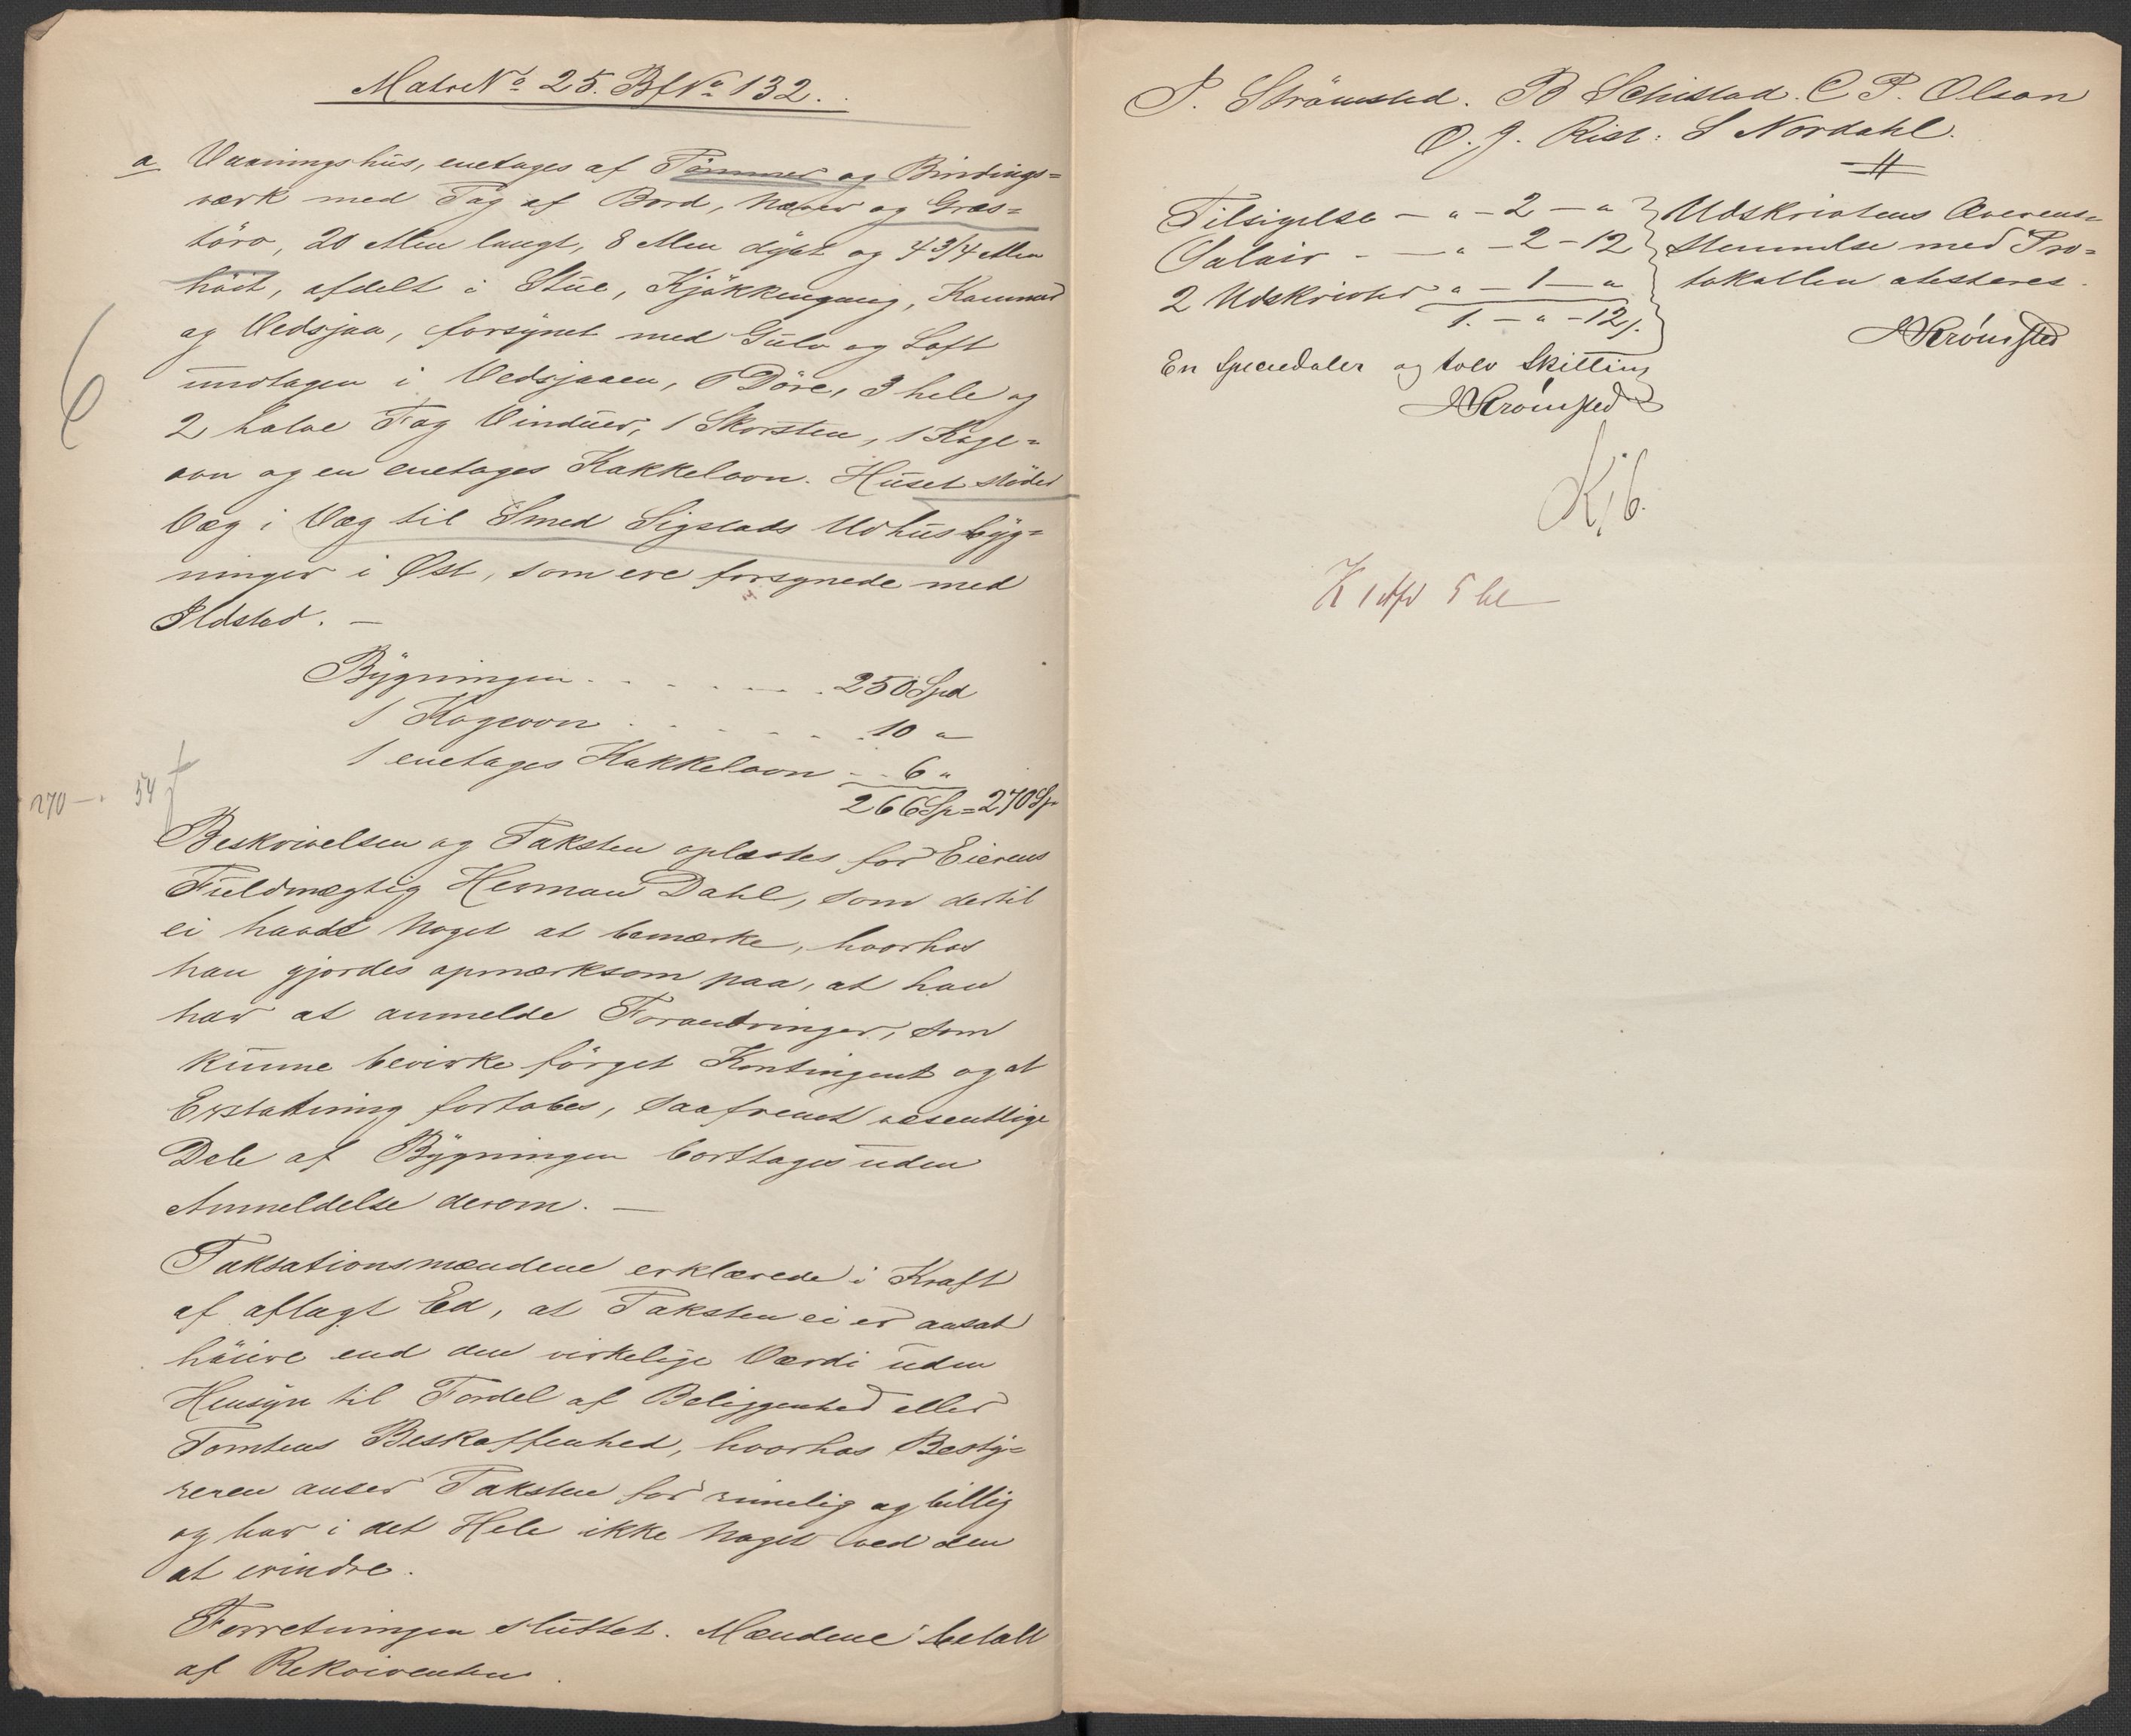 MatrNo 25. BfNo 132.
a Vaaningshus, enetages af Tømmer og Bindings=
værk med Tag af Bord, Næver og Græs=
törv, 20 Alen langt, 8 Alen dybt og 4 3/4 Alen
höit, afdelt i Stue, Kjøkkengang, Kammer
og Vedsjaa, forsynet med Gulv og Loft
undtagen i Vedsjaaen, 6 Döre, 3 hele og
2 halve Fag Vinduer, 1 Skorsten, 1 Koge=
ovn og en enetages Kakkelovn. Huset stöder
Væg i Væg til Smed Sigstads Udhusbyg=
ninger i Øst, som ere forsynede med
Ildsted. —
Bygningen . . . . . . 250 Spd
1 Kogeovn . . . . . 10 "
1 enetages Kakkelovn - - 6 "
266 Sp = 270 Sp
270 — . 54
Beskrivelsen og Taksten oplæstes for Eierens
Fuldmægtig Herman Dahl, som dertil
ei havde Noget at bemærke, hvorhos
han gjordes opmærksom paa, at han
har at anmelde Forandringer, som
kunne bevirke förget Kontingent og at
Erstatning fortabes, saafremt væsentlige
Dele af Bygningen borttages uden
Anmeldelse derom. —
Taksationsmændene erklærede i Kraft
af aflagt Ed, at Taksten ei er ansat
höiere end den virkelige Værdi uden
Hensyn til Fordel af Beliggenhed eller
Tomtens Beskaffenhed, hvorhos Besty=
reren anser Taksten for rimelig og billig
og har i det Hele ikke Noget ved den
at erindre.
Forretningen sluttet. Mændene betalt
af Rekvirenten.
P. Strömsted. B Schistad. C P. Olson
O. J. Rist: S Nordahl.
Tilsigelse — " — 2 — "
Salair - — " — 2 - 12
2 Udskrivter " — 1 — "
1. — " — 12 s.
Udskriftens Overens=
stemmelse med Pro=
tokollen atesteres.
PStrömsted
En Speciedaler og tolv Skilling
PStrömsted
K 1 6.